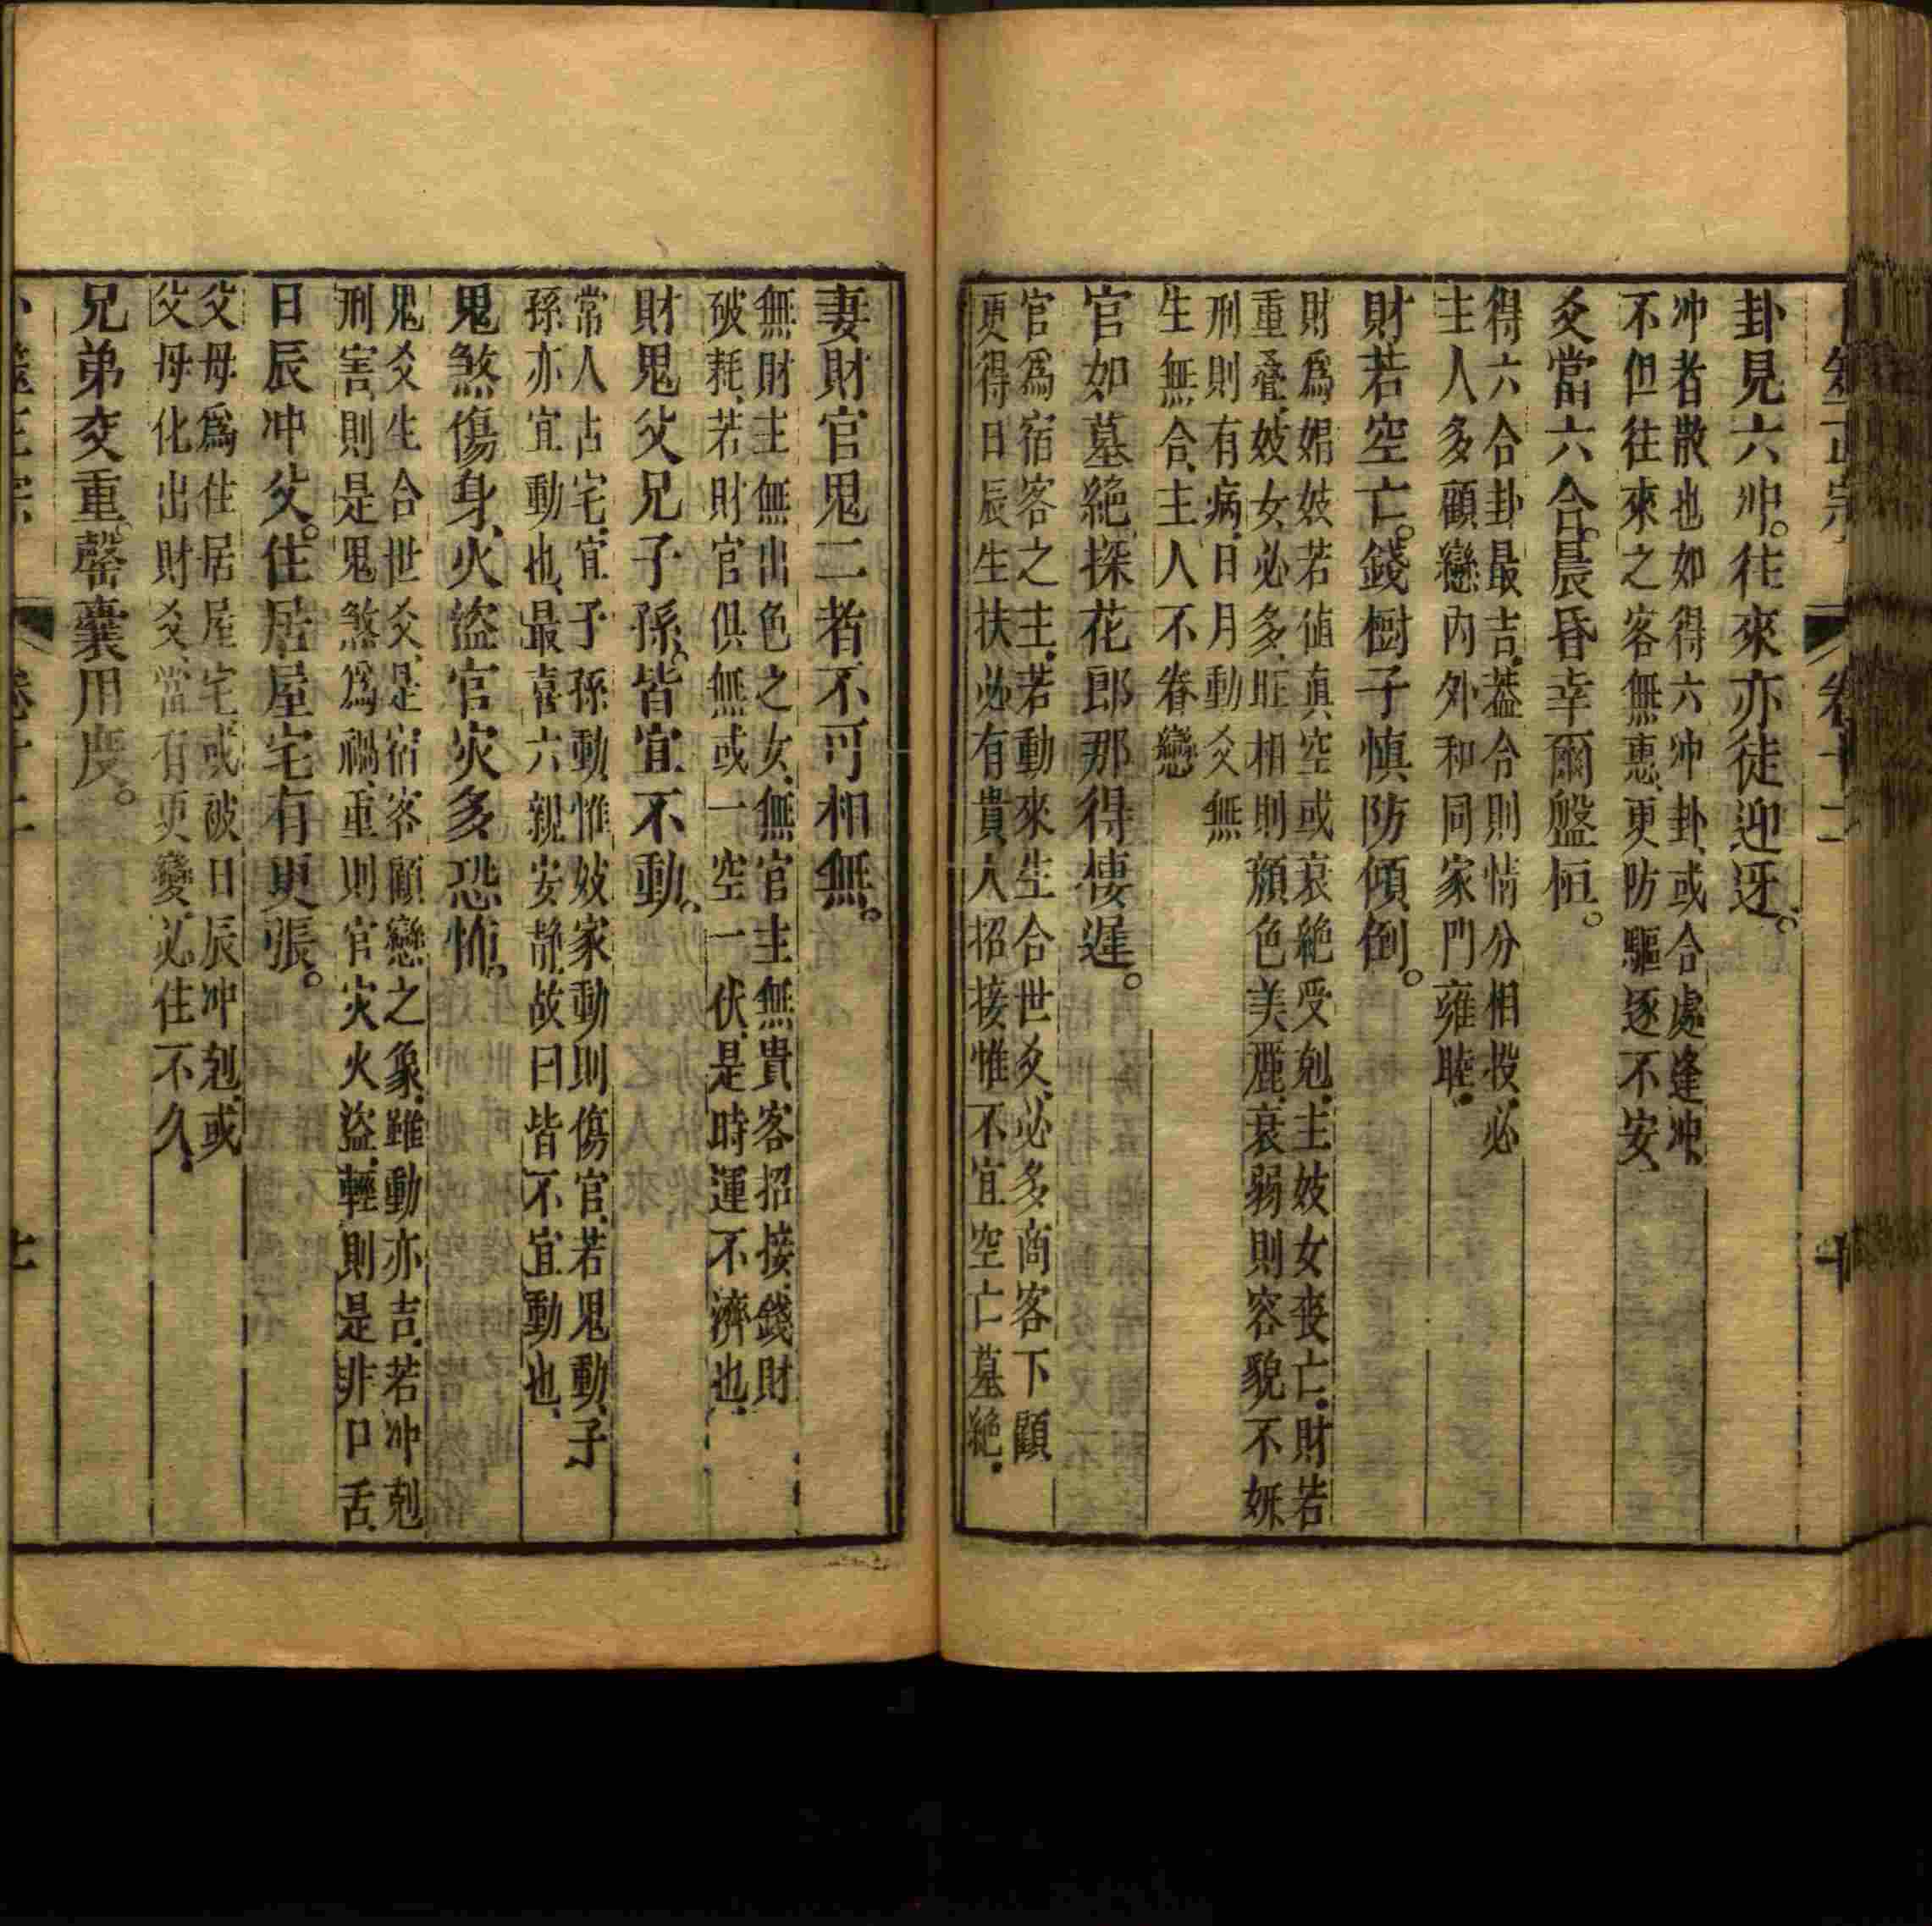 卦見六冲。往來亦徒迎迓。
冲者散也如得六冲卦、或合處逢冲、
不但往來之客無惠、更防驅逐不安、
爻當六合。晨昏幸爾盤桓。
得六合卦最吉、葢合則情分相投、必
主人多顧戀內外和同家門雍睦、
財若空亡。錢樹子慎防傾倒。
財爲娼妓若値眞空或衰絶受剋、主妓女喪亡、財若
重叠、妓女必多、旺相則顏色美麗、衰弱則容貌不妍
刑則有病、日月動爻無
生無合、主人不眷戀
官如墓絶、探花郎那得棲遲。
官爲宿客之主、若動來生合世爻、必多商客下顧
更得日辰生扶必有貴人招接惟不宜空亡墓絶、
妻財官鬼二者不可相無。
無財主無出色之女、無官主無貴客招接、錢財
破耗、若財官俱無或一空一伏、是時運不濟也、
財鬼父兄子孫、皆宜不動。
常人占宅、宜子孫動、惟妓家動則傷官、若鬼動、子
孫亦宜動也、最喜六親安静、故曰皆不宜動也、
鬼煞傷身、火盜官灾多恐怖。
鬼爻生合世爻、是宿客顧戀之象、雖動亦吉、若冲剋
刑害、則是鬼煞爲禍、重則官灾火盜、輕則是非口舌、
日辰冲父。住居屋宅有更張。
父母爲住居屋宅或被日辰冲剋、或
父母化出財爻、當有更變、必住不久、
兄弟交重。罄囊用度。